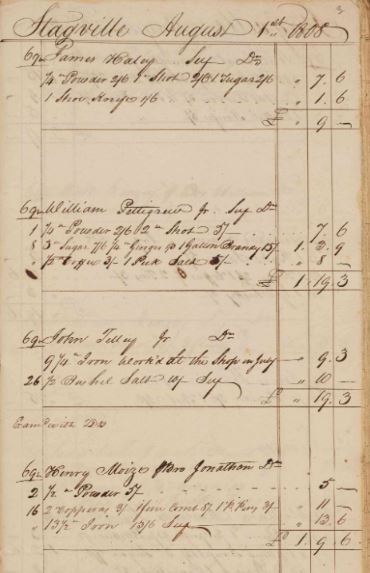 Stagville August 1st 1808
69 James Haley Dr
1/4 " Powder 2/6 1 " Shot 2/6 1 Sugar 2/6 " 7. 6
1 Shoe Knife 1/6 " 1. 6
" 9 —
69 William Pettigrew Jr. Dr
1 1/4 " Powder 2/6 2 " Shot 5/ " 7. 6
8 3 " Sugar 7/6 1/4 " Ginger 1 Gallon Brandy 15/ 1. 3. 9
" Coffee 3/ 1 Peck Salt 5/ " 8 —
1. 19. 3
69 John Tilley Jr Dr
9 1/4 " Iron work'd at the Shop in July " 9. 3
26 1/2 Bushel Salt " 10 —
£ " 19. 3
69 Henry Moize Jonathan Dr
2 1/2 " Powder 5/ 5 —
16 2 Copperas 3/ 1 Comb 5/ 1 Pins 3/ " 11 —
" 13 1/2 Iron 13/6 " 13. 6
£ 1. 9. 6